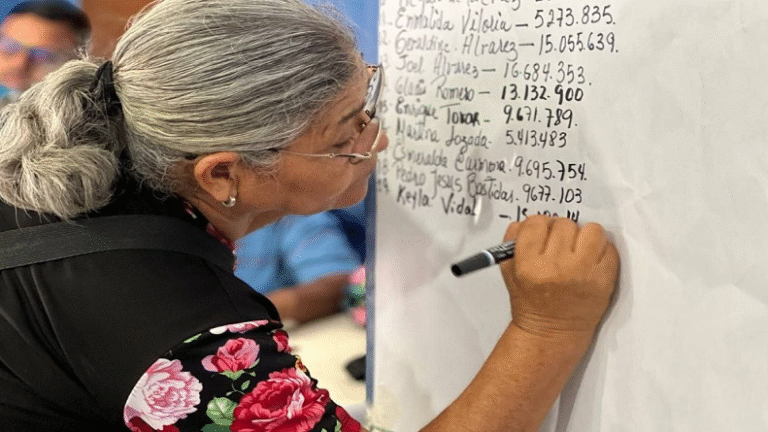 Enmalida Viloria - 5273.835.
Geraldine Alvarez - 15.055.639.
Joel Alvarez - 16.684.353.
Romero - 13.132.900
Enrique Tovar - 9.671.789.
Martina Lozada - 5.413.483
Esmeralda Carmona. 9.695.754.
Pedro Jesus Bastidas. 9677.103
Keyla Vidal -